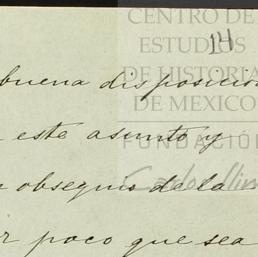 CENTRO DE
ESTUDIOS
14
DE HISTORIA
DE MEXICO
FUNDACIÓN
buena disposición
este asunto y
obsequio de la
poco que sea